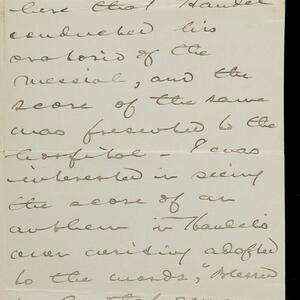 here that Handel
conducted his
oratorio of the
Messiah, and the
score of the same
was presented to the
Hospital - I was
interested in seeing
the score of an
anthem in Handel's
own writing adopted
to the words, "Blessed